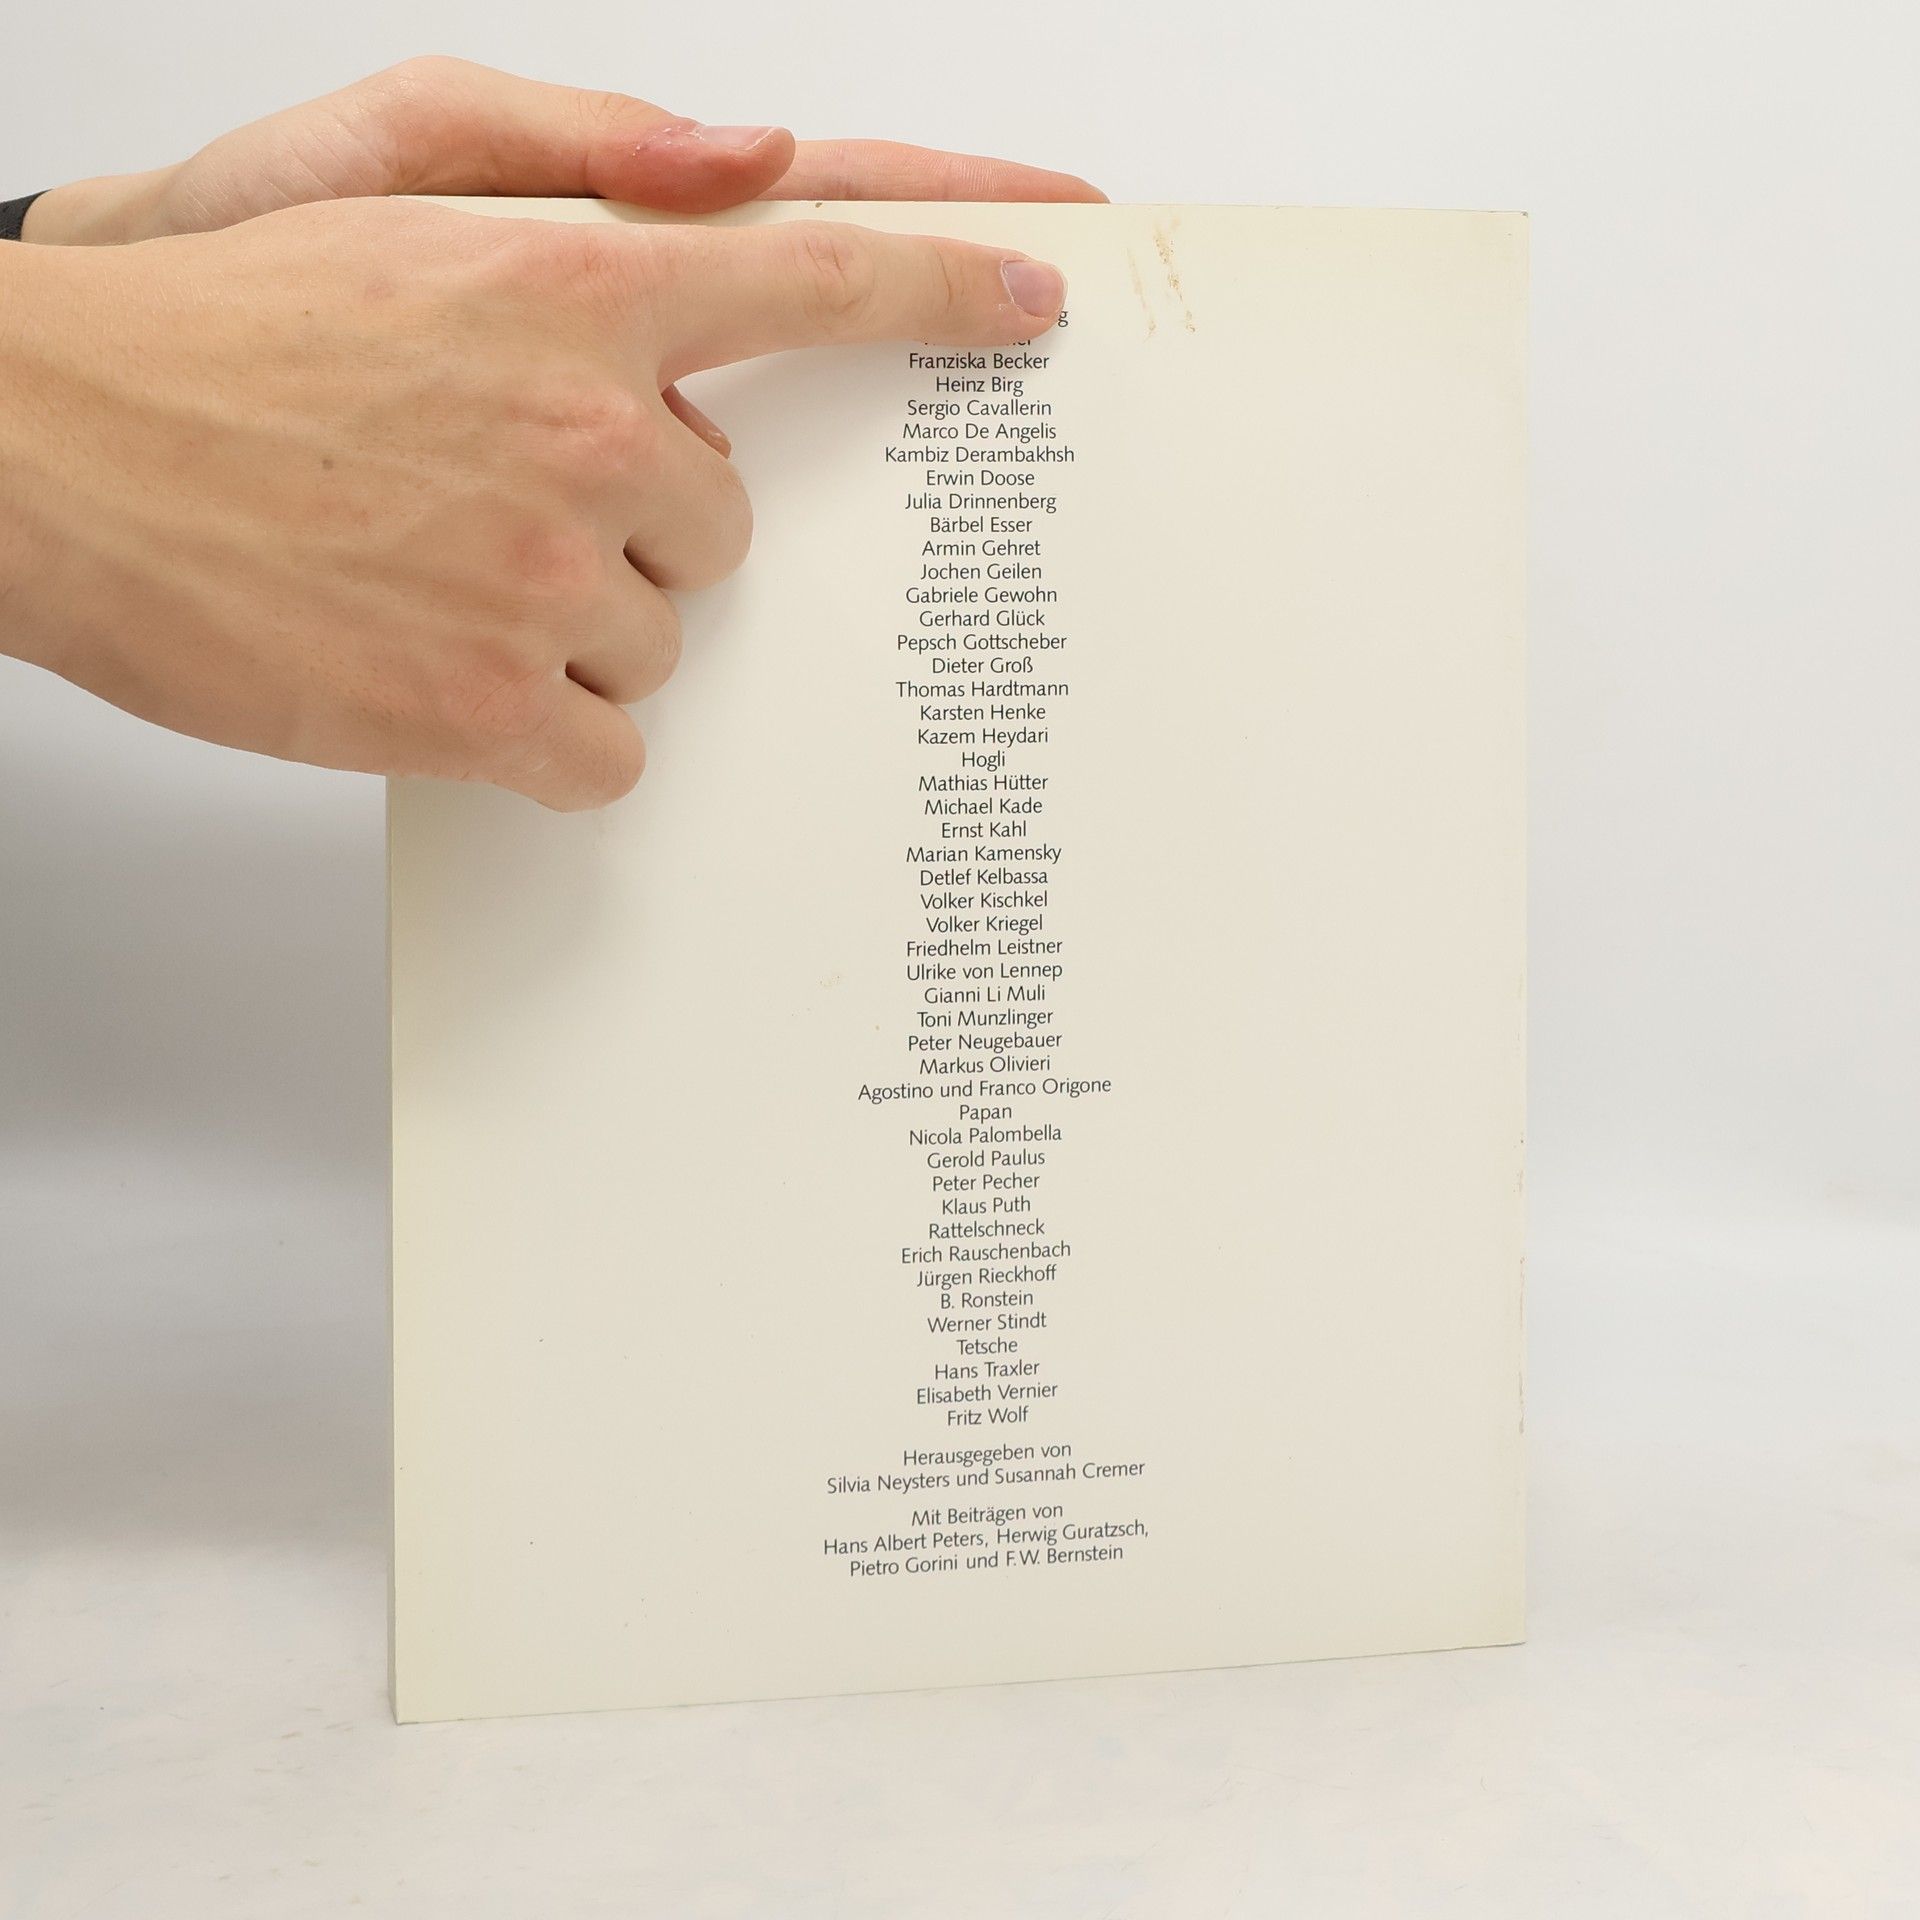 Franziska Becker
Heinz Birg
Sergio Cavallerin
Marco De Angelis
Kambiz Derambakhsh
Erwin Doose
Julia Drinnenberg
Bärbel Esser
Armin Gehret
Jochen Geilen
Gabriele Gewohn
Gerhard Glück
Pepsch Gottscheber
Dieter Groß
Thomas Hardtmann
Karsten Henke
Kazem Heydari
Hogli
Mathias Hütter
Michael Kade
Ernst Kahl
Marian Kamensky
Detlef Kelbassa
Volker Kischkel
Volker Kriegel
Friedhelm Leistner
Ulrike von Lennep
Gianni Li Muli
Toni Munzlinger
Peter Neugebauer
Markus Olivieri
Agostino und Franco Origone
Papan
Nicola Palombella
Gerold Paulus
Peter Pecher
Klaus Puth
Rattelschneck
Erich Rauschenbach
Jürgen Rieckhoff
B. Ronstein
Werner Stindt
Tetsche
Hans Traxler
Elisabeth Vernier
Fritz Wolf
Herausgegeben von
Silvia Neysters und Susannah Cremer
Mit Beiträgen von
Hans Albert Peters, Herwig Guratzsch,
Pietro Gorini und F.W. Bernstein